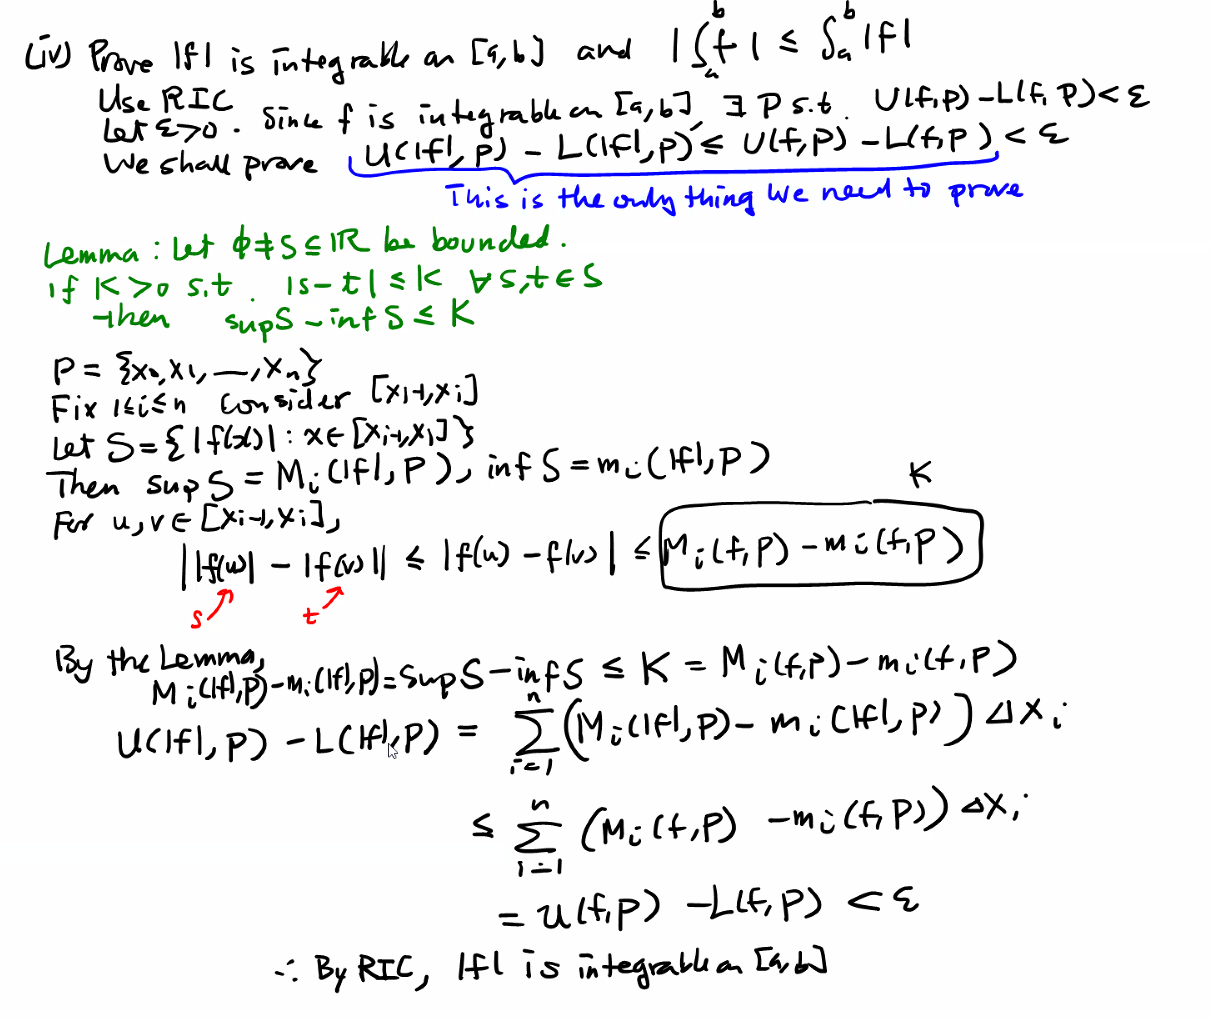 (iv) Prove |f| is integrable on [a,b] and |∫_a^b f| ≤ ∫_a^b |f|
Use RIC
Let ε>0. Since f is integrable on [a,b], ∃ P s.t. U(f,P) - L(f,P) < ε
We shall prove U(|f|,P) - L(|f|,P) ≤ U(f,P) - L(f,P) < ε
This is the only thing we need to prove
Lemma: Let ϕ≠S⊆ℝ be bounded.
If K>0 s.t. |s-t| ≤ K ∀ s,t ∈ S
then sup S - inf S ≤ K
P = {x₀,x₁,—,xₙ}
Fix 1≤i≤n Consider [x_{i-1},x_i]
Let S={|f(x)| : x∈[x_{i-1},x_i]}
Then sup S = M_i(|f|,P), inf S = m_i(|f|,P)
K
For u,v ∈ [x_{i-1},x_i],
||f(u)| - |f(v)|| ≤ |f(u) - f(v)| ≤ M_i(f,P) - m_i(f,P)
s t
By the Lemma,
M_i(|f|,P) - m_i(|f|,P) = sup S - inf S ≤ K = M_i(f,P) - m_i(f,P)
U(|f|,P) - L(|f|,P) = ∑_{i=1}^n (M_i(|f|,P) - m_i(|f|,P)) Δx_i
≤ ∑_{i=1}^n (M_i(f,P) - m_i(f,P)) Δx_i
= U(f,P) - L(f,P) < ε
∴ By RIC, |f| is integrable on [a,b]